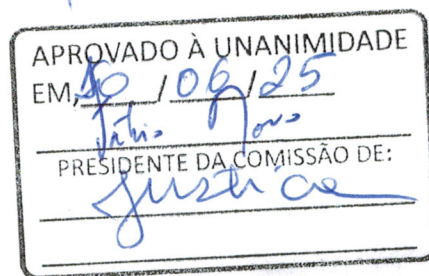 APROVADO À UNANIMIDADE
EM, 10 / 06 / 25
PRESIDENTE DA COMISSÃO DE:
Justiça